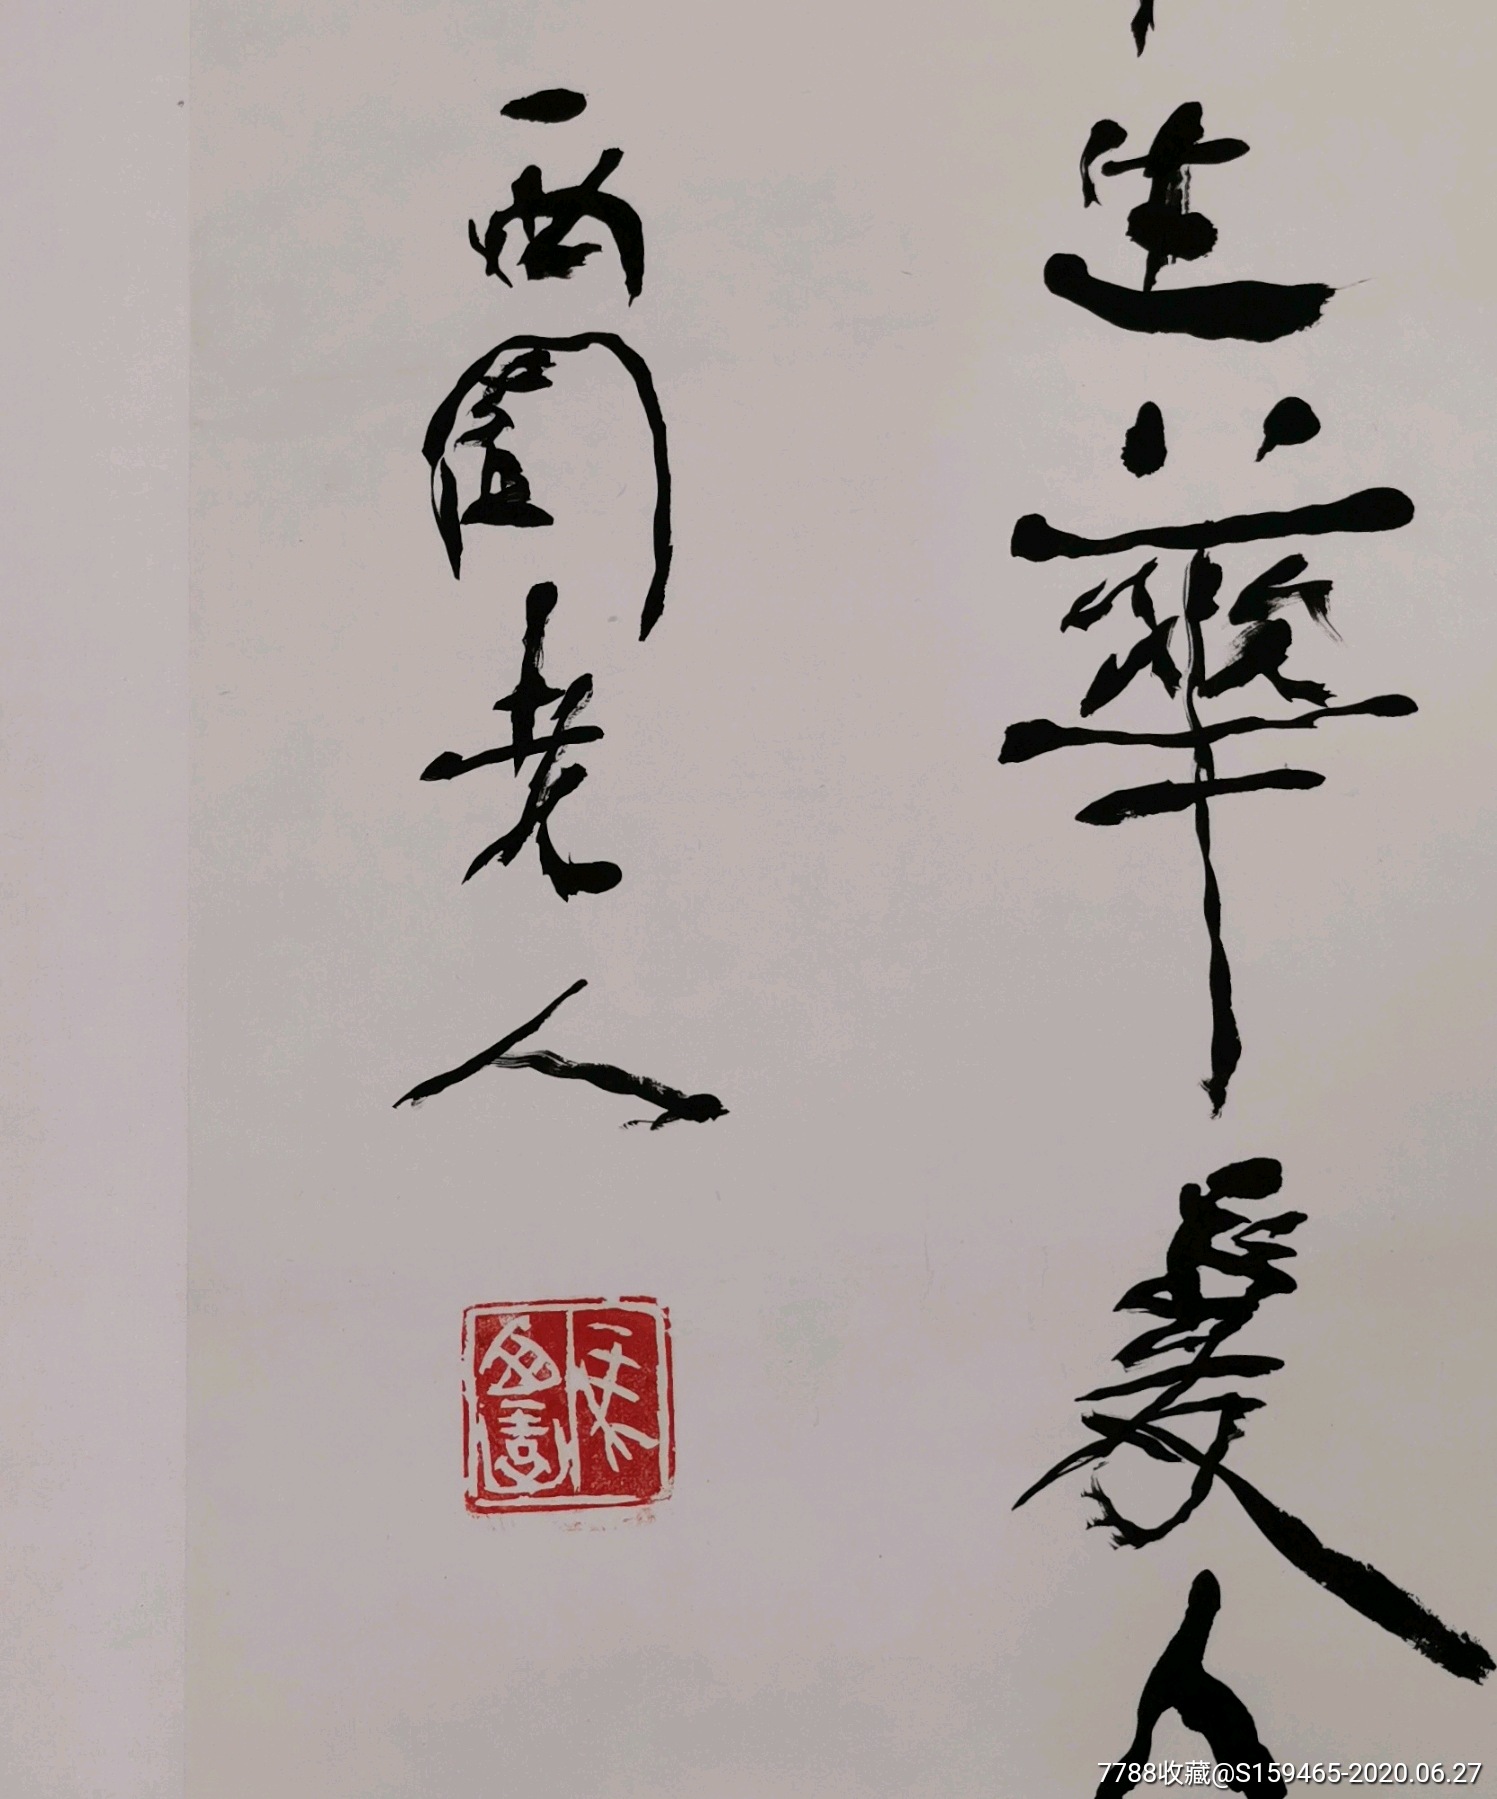 生華夏人
西園老人
西園
7788收藏@S159465-2020.06.27